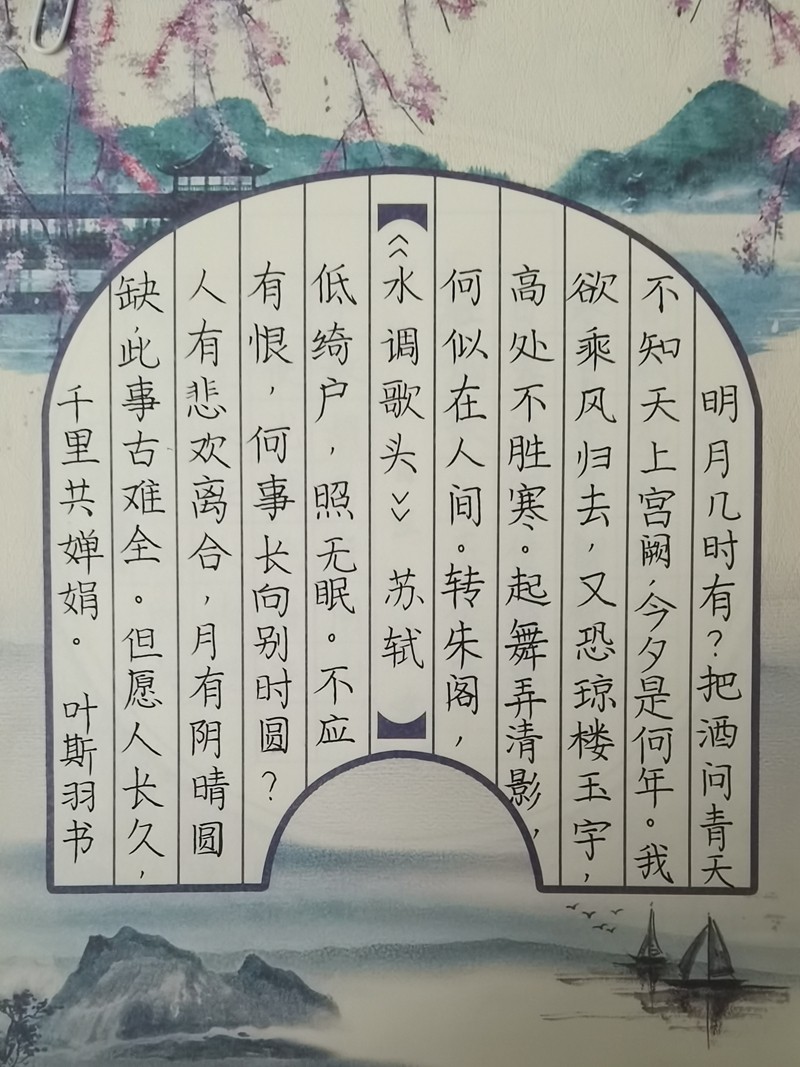 明月几时有？把酒问青天
不知天上宫阙，今夕是何年。我
欲乘风归去，又恐琼楼玉宇，
高处不胜寒。起舞弄清影，
何似在人间。转朱阁，
《水调歌头》 苏轼
低绮户，照无眠。不应
有恨，何事长向别时圆？
人有悲欢离合，月有阴晴圆
缺，此事古难全。但愿人长久，
千里共婵娟。 叶斯羽书